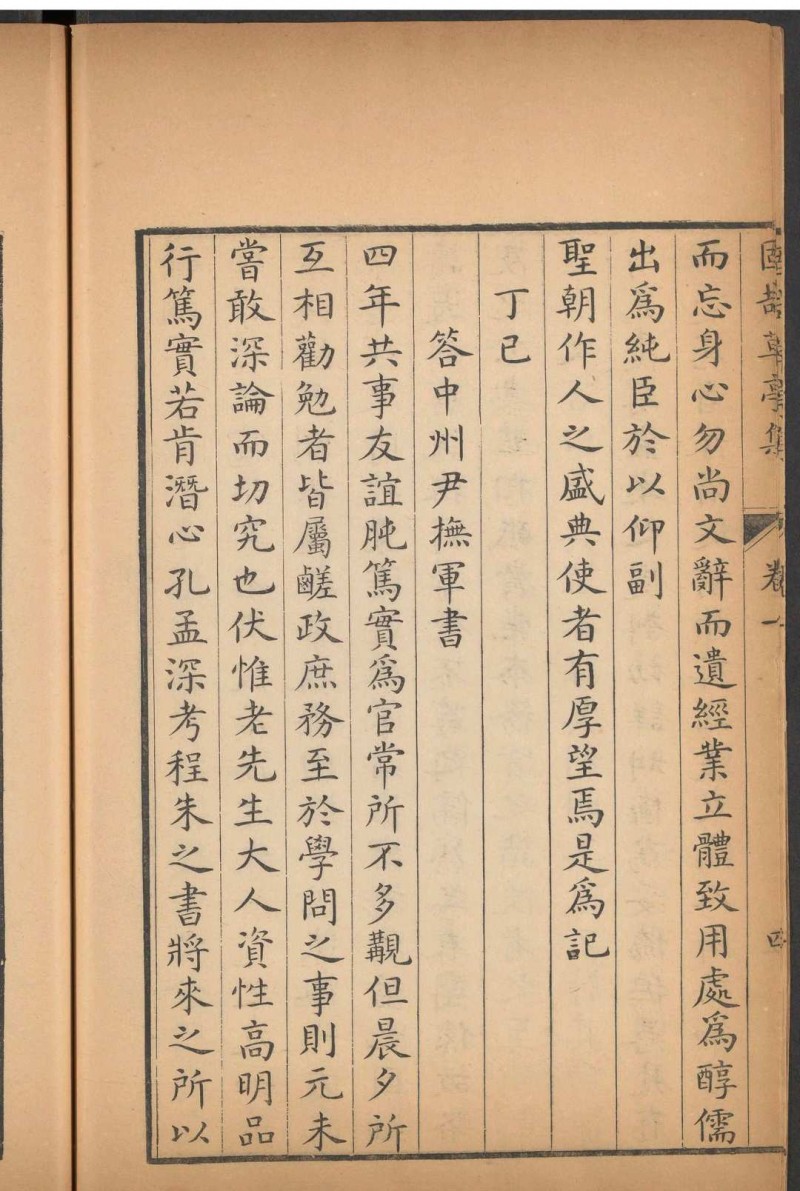 卷一
而忘身心勿尚文辭而遺經業立體致用處爲醇儒
出爲純臣於以仰副
聖朝作人之盛典使者有厚望焉是爲記
丁巳
答中州尹撫軍書
四年共事友誼肫篤實爲官常所不多覯但晨夕所
互相勸勉者皆屬鹺政庶務至於學問之事則元未
嘗敢深論而切究也伏惟老先生大人資性高明品
行篤實若肯潛心孔孟深考程朱之書將來之所以